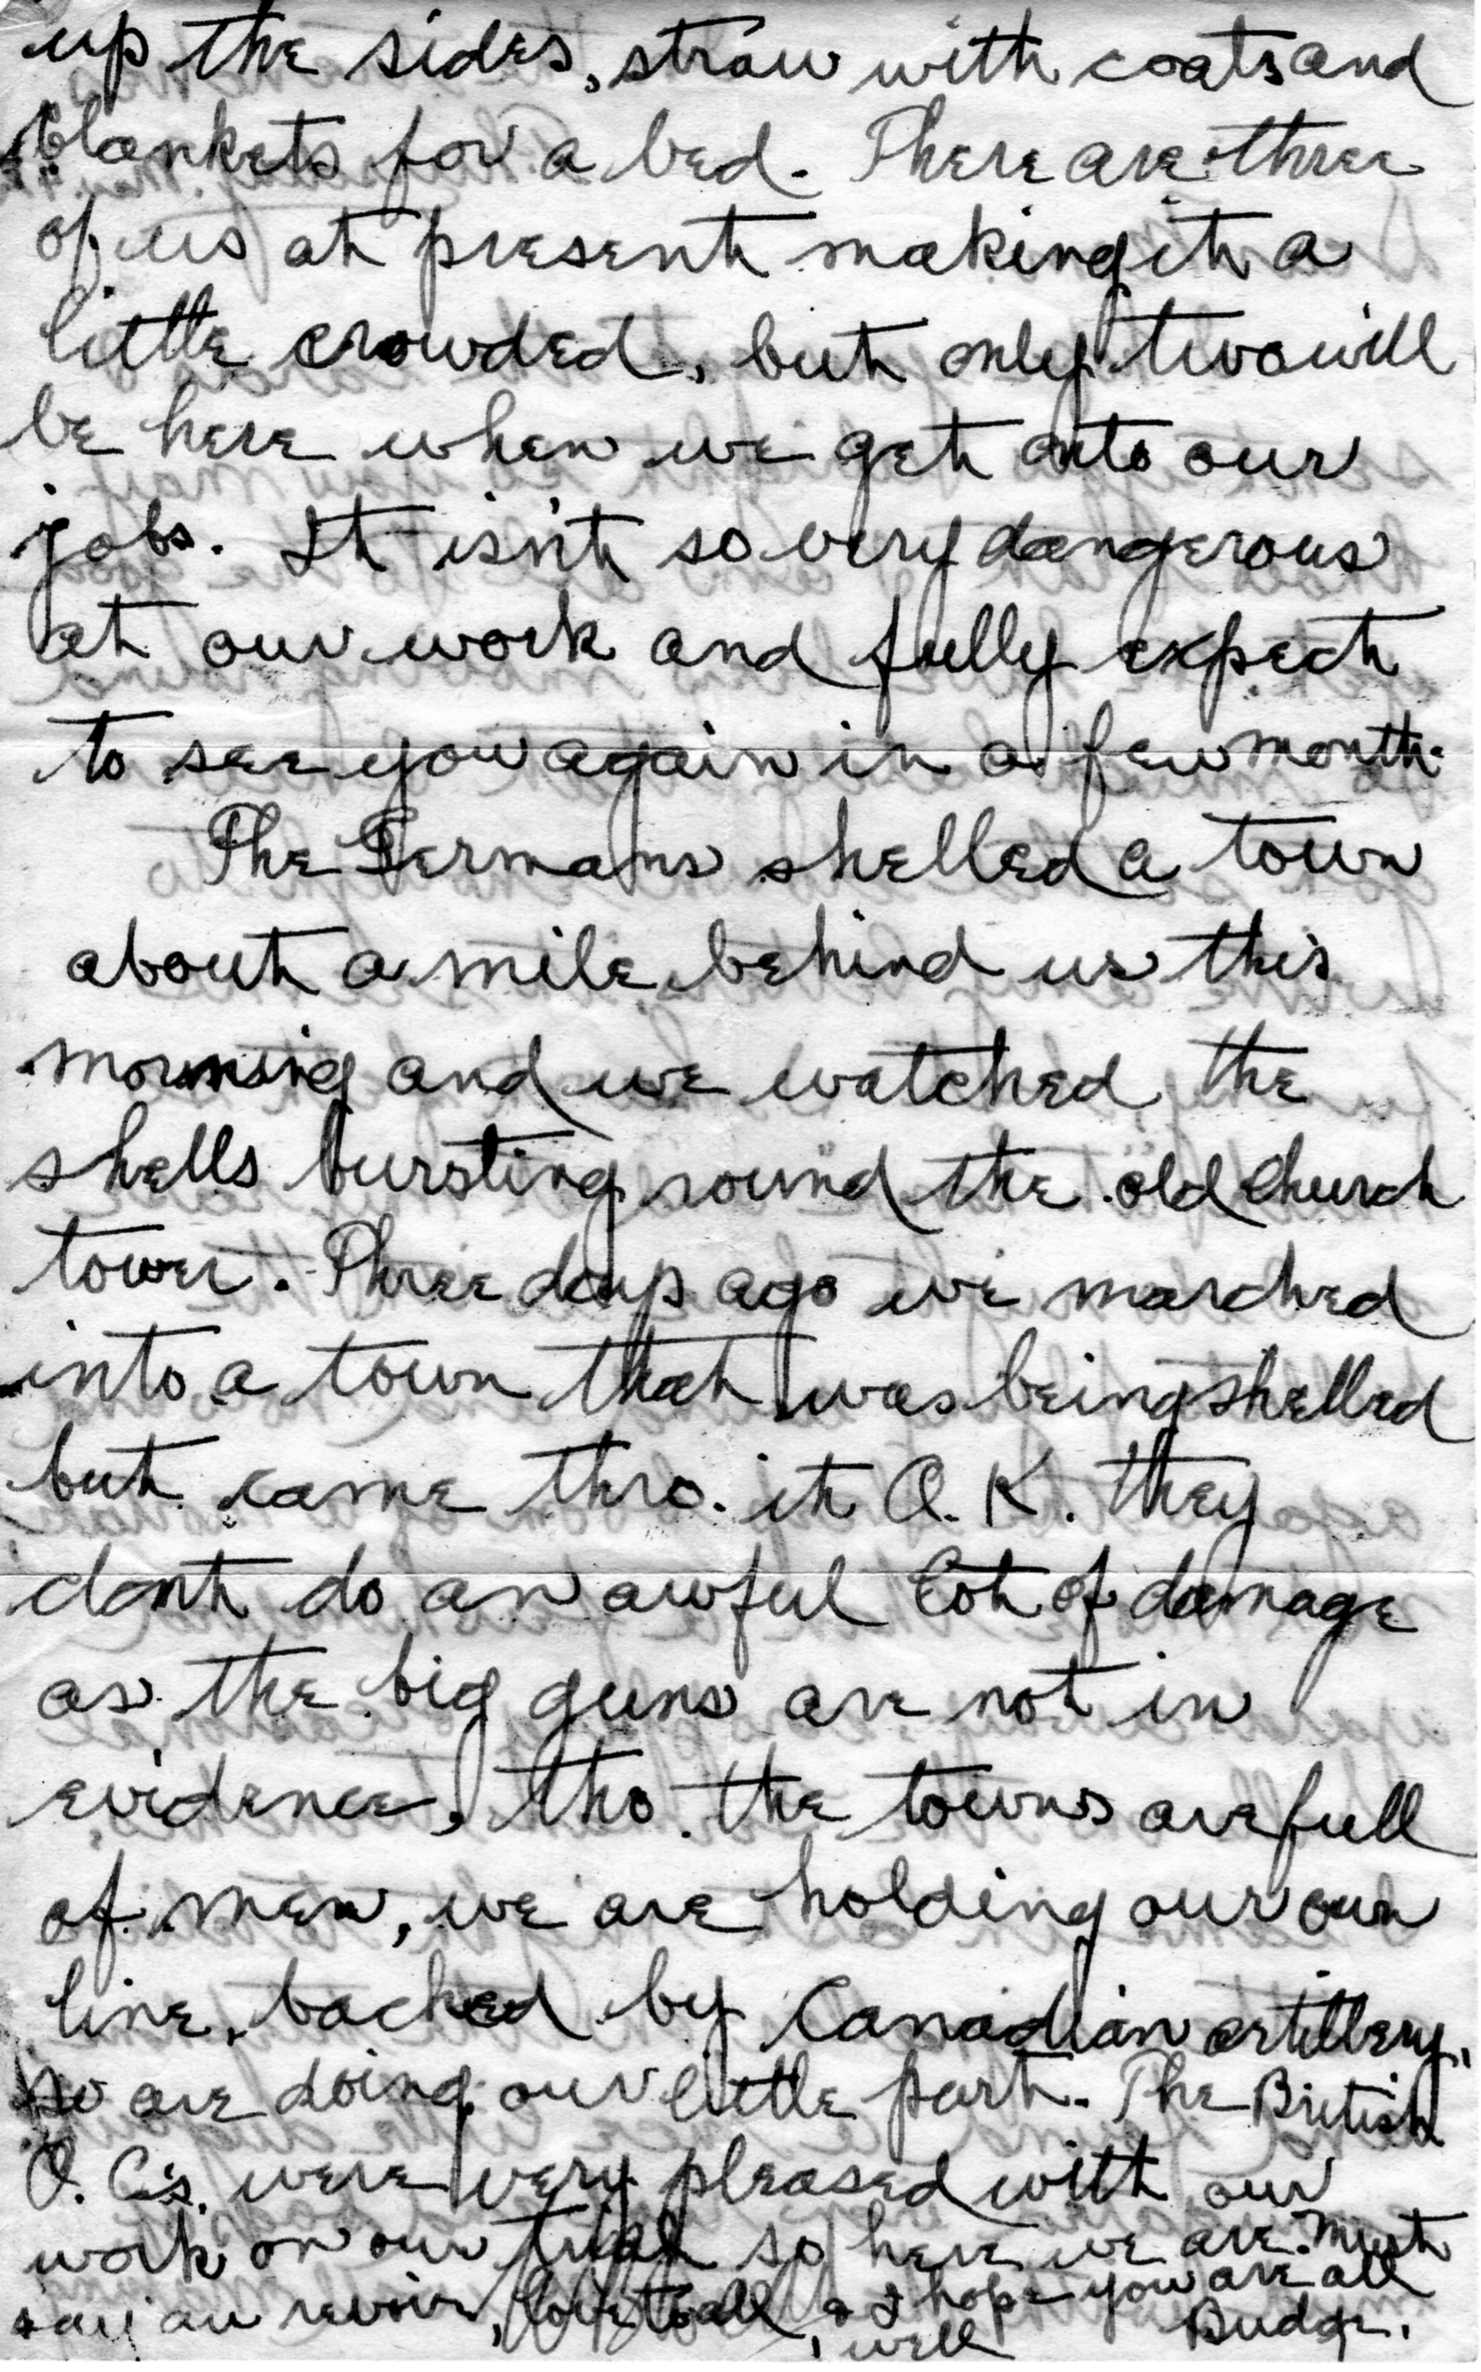 up the sides, straw with coats and
blankets for a bed. There are three
of us at present making it a
little crowded, but only two will
be here when we get onto our
jobs. It isn't so very dangerous
at our work and fully expect
to see you again in a few month.
The Germans shelled a town
about a mile behind us this
morning and we watched the
shells bursting round the old church
tower. Three days ago we marched
into a town that was being shelled
but came thro. it O.K. they
dont do an awful lot of damage
as the big guns are not in
evidence, tho. the towns are full
of men, we are holding our own
line, backed by Canadian artillery,
so are doing our little part. The British
O. C's. were very pleased with our
work on our trial so here we are. Must
say au revoir, love to all, & I hope you are all
well
Budge.